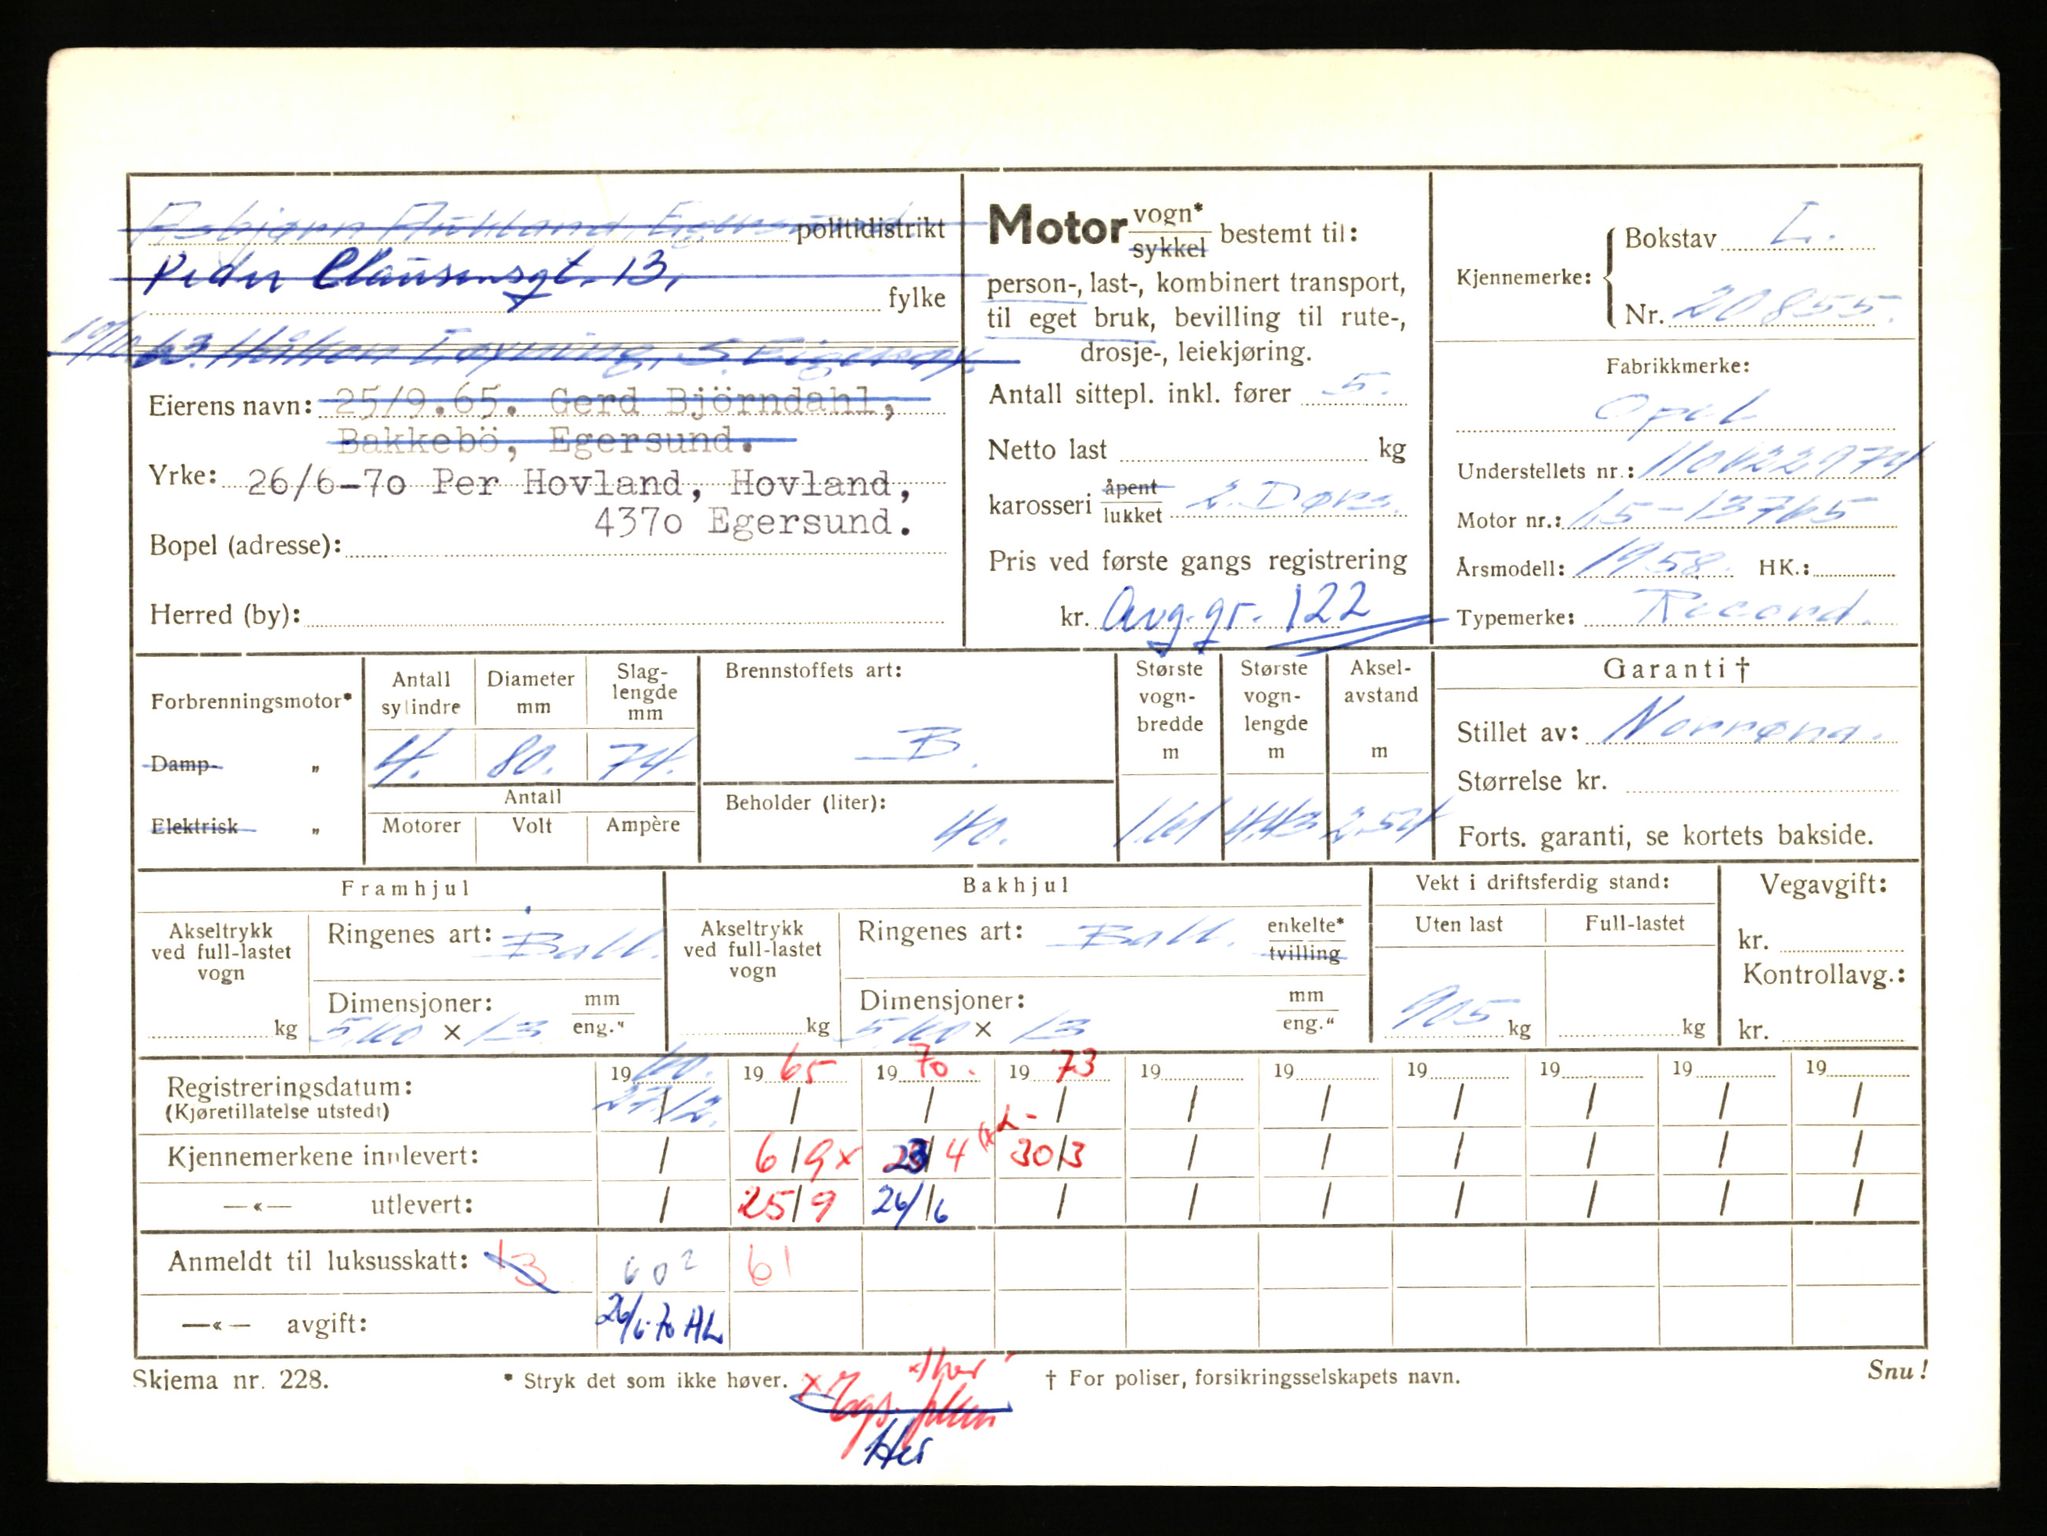 Asbjørn Aukland, Egersund politidistrikt
Peder Clausensgt. 13,
fylke
Håkon
Eierens navn: 25/9.65. Gerd Björndahl,
Bakkebö, Egersund.
Yrke: 26/6-70 Per Hovland, Hovland,
4370 Egersund.
Bopel (adresse):
Herred (by):
Motor vogn* / sykkel bestemt til:
person-, last-, kombinert transport,
til eget bruk, bevilling til rute-,
drosje-, leiekjøring.
Antall sittepl. inkl. fører 5.
Netto last kg
karosseri åpent / lukket 2. Dørs.
Pris ved første gangs registrering
kr. Avg.gr. 122
Kjennemerke: Bokstav L.
Nr. 20855.
Fabrikkmerke:
Opel
Understellets nr.:
Motor nr.: 1,5-13765
Årsmodell: 1958. HK.:
Typemerke: Record.
Forbrenningsmotor*
Damp- „
Elektrisk „
Antall sylindre 4.
Diameter mm 80.
Slaglengde mm 74.
Antall
Motorer Volt Ampère
Brennstoffets art:
B.
Beholder (liter):
40.
Største vogn-bredde m 1.61
Største vogn-lengde m 4,43
Aksel-avstand m 2.54
Garanti †
Stillet av: Norrøna.
Størrelse kr.
Forts. garanti, se kortets bakside.
Framhjul
Akseltrykk ved full-lastet vogn
kg
Ringenes art: Ball.
Dimensjoner: mm / eng.“
5.60 x 13
Bakhjul
Akseltrykk ved full-lastet vogn
kg
Ringenes art: Ball. enkelte* / tvilling
Dimensjoner: mm / eng.“
5.60 x 13
Vekt i driftsferdig stand:
Uten last Full-lastet
905 kg kg
Vegavgift:
kr.
Kontrollavg.:
kr.
Registreringsdatum: 19 60. 19 65 19 70. 19 73 19 19 19 19 19 19
(Kjøretillatelse utstedt) 27/2. / / / / / / / / /
Kjennemerkene innlevert: / 6/9 x 23/4 (x L- 30/3 / / / / / /
—«— utlevert: / 25/9 26/6 / / / / / / /
Anmeldt til luksusskatt: 13 602 61
—«— avgift: 26/6-70 AL
Skjema nr. 228.
* Stryk det som ikke høver.
† For poliser, forsikringsselskapets navn.
Snu!
x her
Her